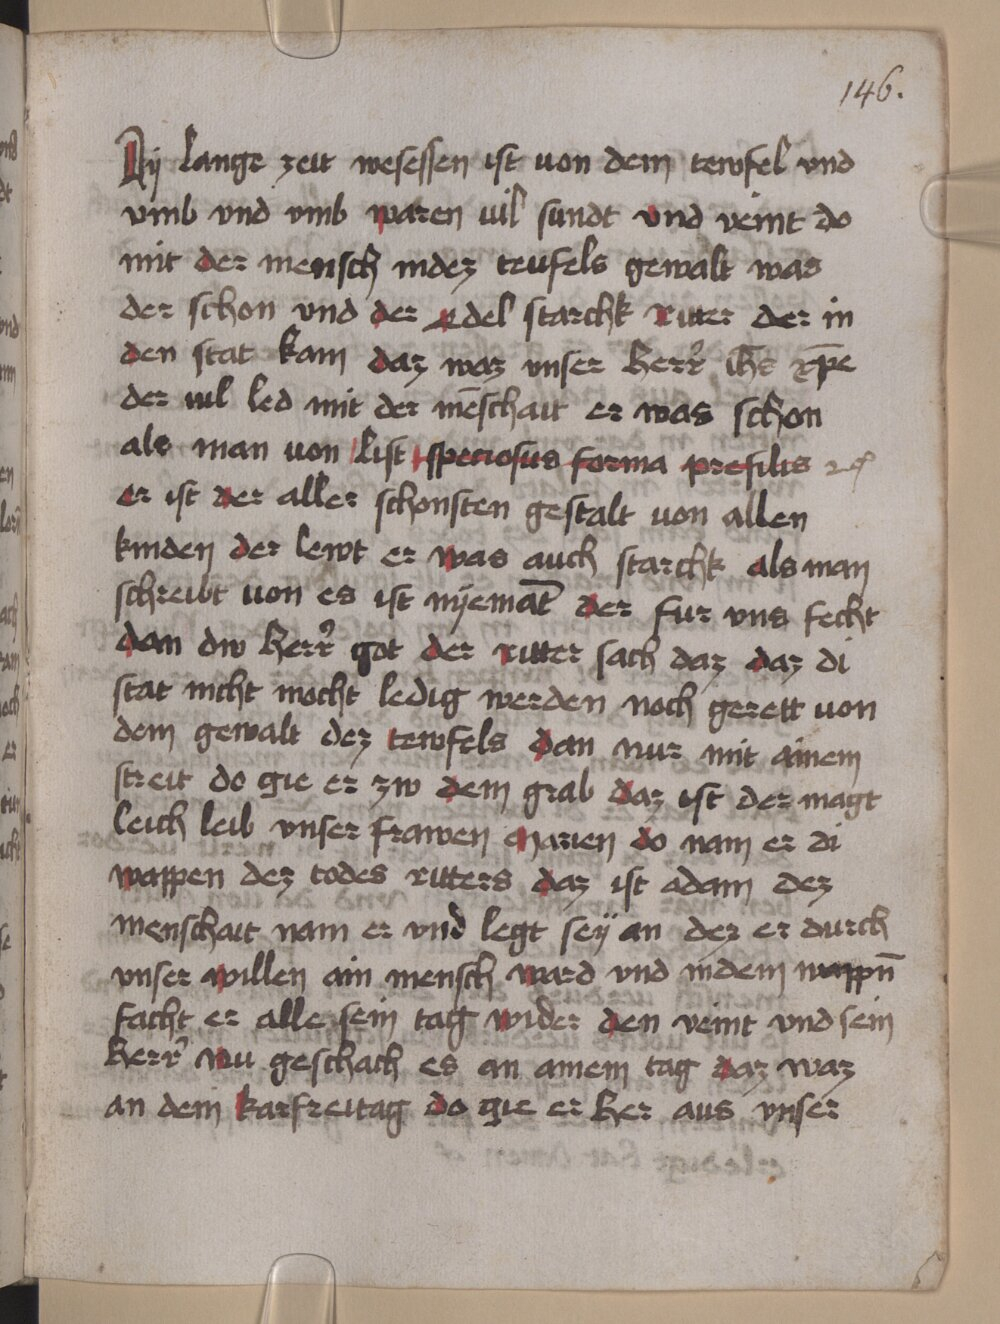 146.
Dy lange zeit wesessen ist von dem tewfel vnd
vmb vnd vmb waren vil sundt vnd veint do
mit der mensch indez teufels gewalt was
der schon vnd der edel starchk ritter der in
den stat kam daz waz vnser herr ihs xpe
der vil led mit der menschait er was schon
als man von list speciosus forma prefilis
er ist der aller schonsten gestalt von allen
kinden der lewt er was auch starchk als man
schreibt von es ist nyemat der fur vns fecht
dan div herr got der ritter sach daz daz di
stat nicht mocht ledig werden noch gerett von
dem gewalt dez tewfels dan nur mit ainem
streit do gie er zw dem grab daz ist der magt
leich leib vnser frawen Marien do nam er di
wappen dez todes ritters daz ist adam dez
menschait nam er vnd legt sey an der er durch
vnser willen ain mensch ward vnd indem wappn
facht er alle sein tag wider den veint vnd sein
herr nu geschach es an ainem tag daz waz
an dem karfreitag do gie er her aus vnser